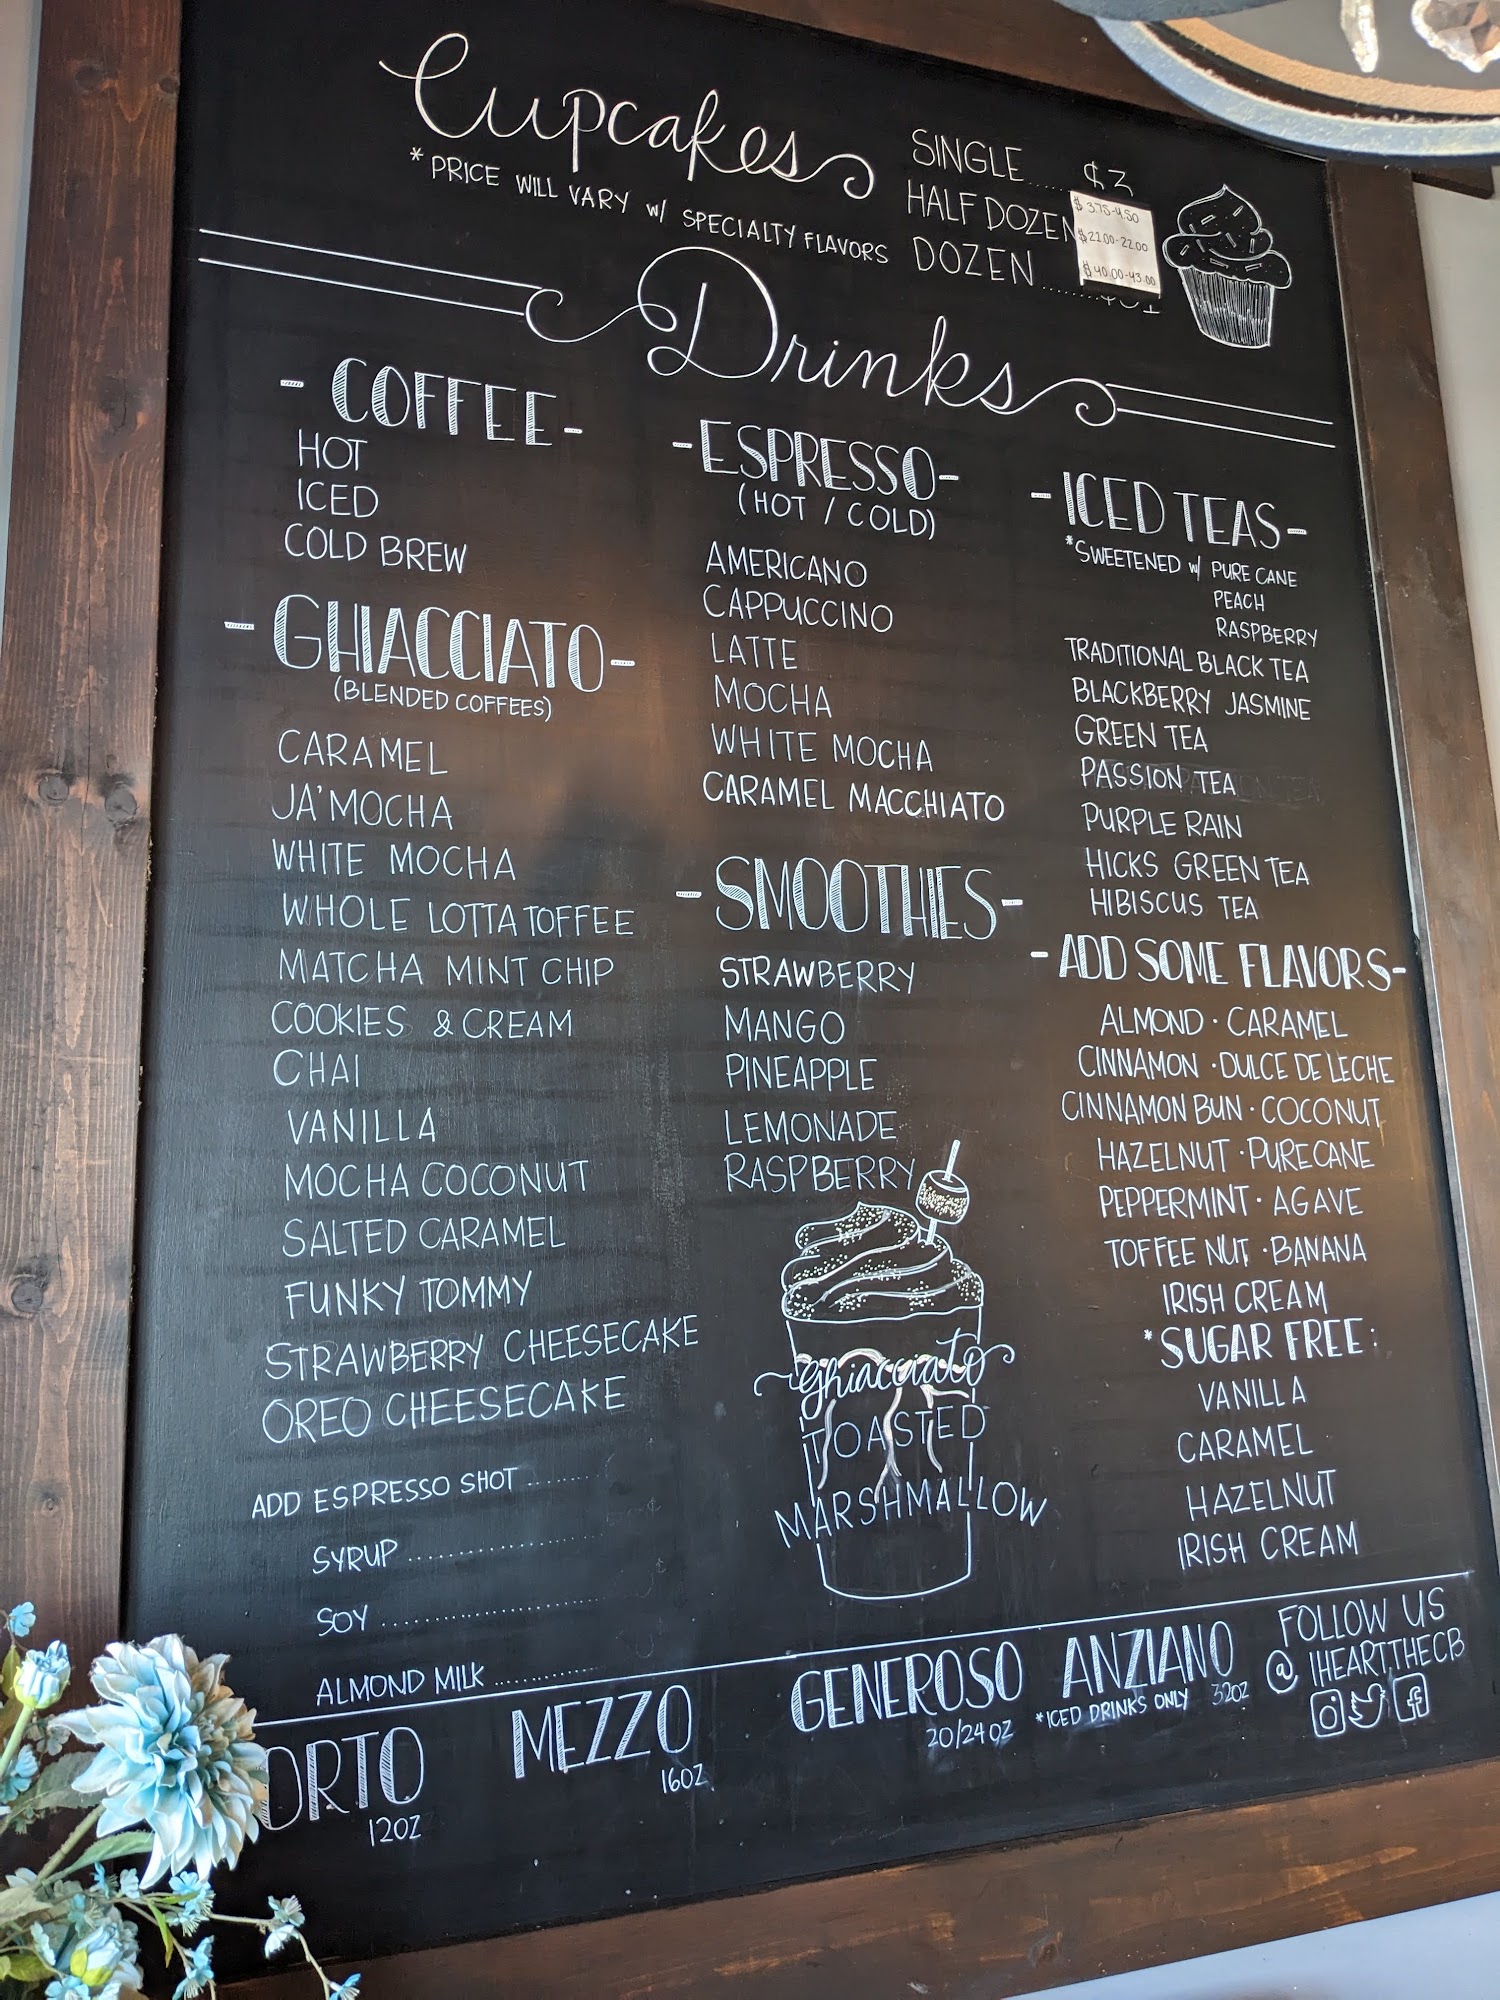 Cupcakes
* PRICE WILL VARY w/ SPECIALTY FLAVORS
SINGLE..... $3
HALF DOZEN
DOZEN .........
$3.75-4.50
$21.00-22.00
$40.00-43.00
Drinks
- COFFEE -
HOT
ICED
COLD BREW
- GHIACCIATO -
(BLENDED COFFEES)
CARAMEL
JA'MOCHA
WHITE MOCHA
WHOLE LOTTA TOFFEE
MATCHA MINT CHIP
COOKIES & CREAM
CHAI
VANILLA
MOCHA COCONUT
SALTED CARAMEL
FUNKY TOMMY
STRAWBERRY CHEESECAKE
OREO CHEESECAKE
ADD ESPRESSO SHOT ........
SYRUP ..................
SOY .......................
ALMOND MILK .............
- ESPRESSO -
(HOT / COLD)
AMERICANO
CAPPUCCINO
LATTE
MOCHA
WHITE MOCHA
CARAMEL MACCHIATO
- SMOOTHIES -
STRAWBERRY
MANGO
PINEAPPLE
LEMONADE
RASPBERRY
Ghiacciato
TOASTED
MARSHMALLOW
- ICED TEAS -
*SWEETENED w/ PURE CANE
PEACH
RASPBERRY
TRADITIONAL BLACK TEA
BLACKBERRY JASMINE
GREEN TEA
PASSION TEA
PURPLE RAIN
HICKS GREEN TEA
HIBISCUS TEA
- ADD SOME FLAVORS -
ALMOND · CARAMEL
CINNAMON · DULCE DE LECHE
CINNAMON BUN · COCONUT
HAZELNUT · PURE CANE
PEPPERMINT · AGAVE
TOFFEE NUT · BANANA
IRISH CREAM
* SUGAR FREE:
VANILLA
CARAMEL
HAZELNUT
IRISH CREAM
ORTO
12OZ
MEZZO
16OZ
GENEROSO
20/24 OZ
ANZIANO
*ICED DRINKS ONLY 32OZ
FOLLOW US
@ IHEARTTHECB